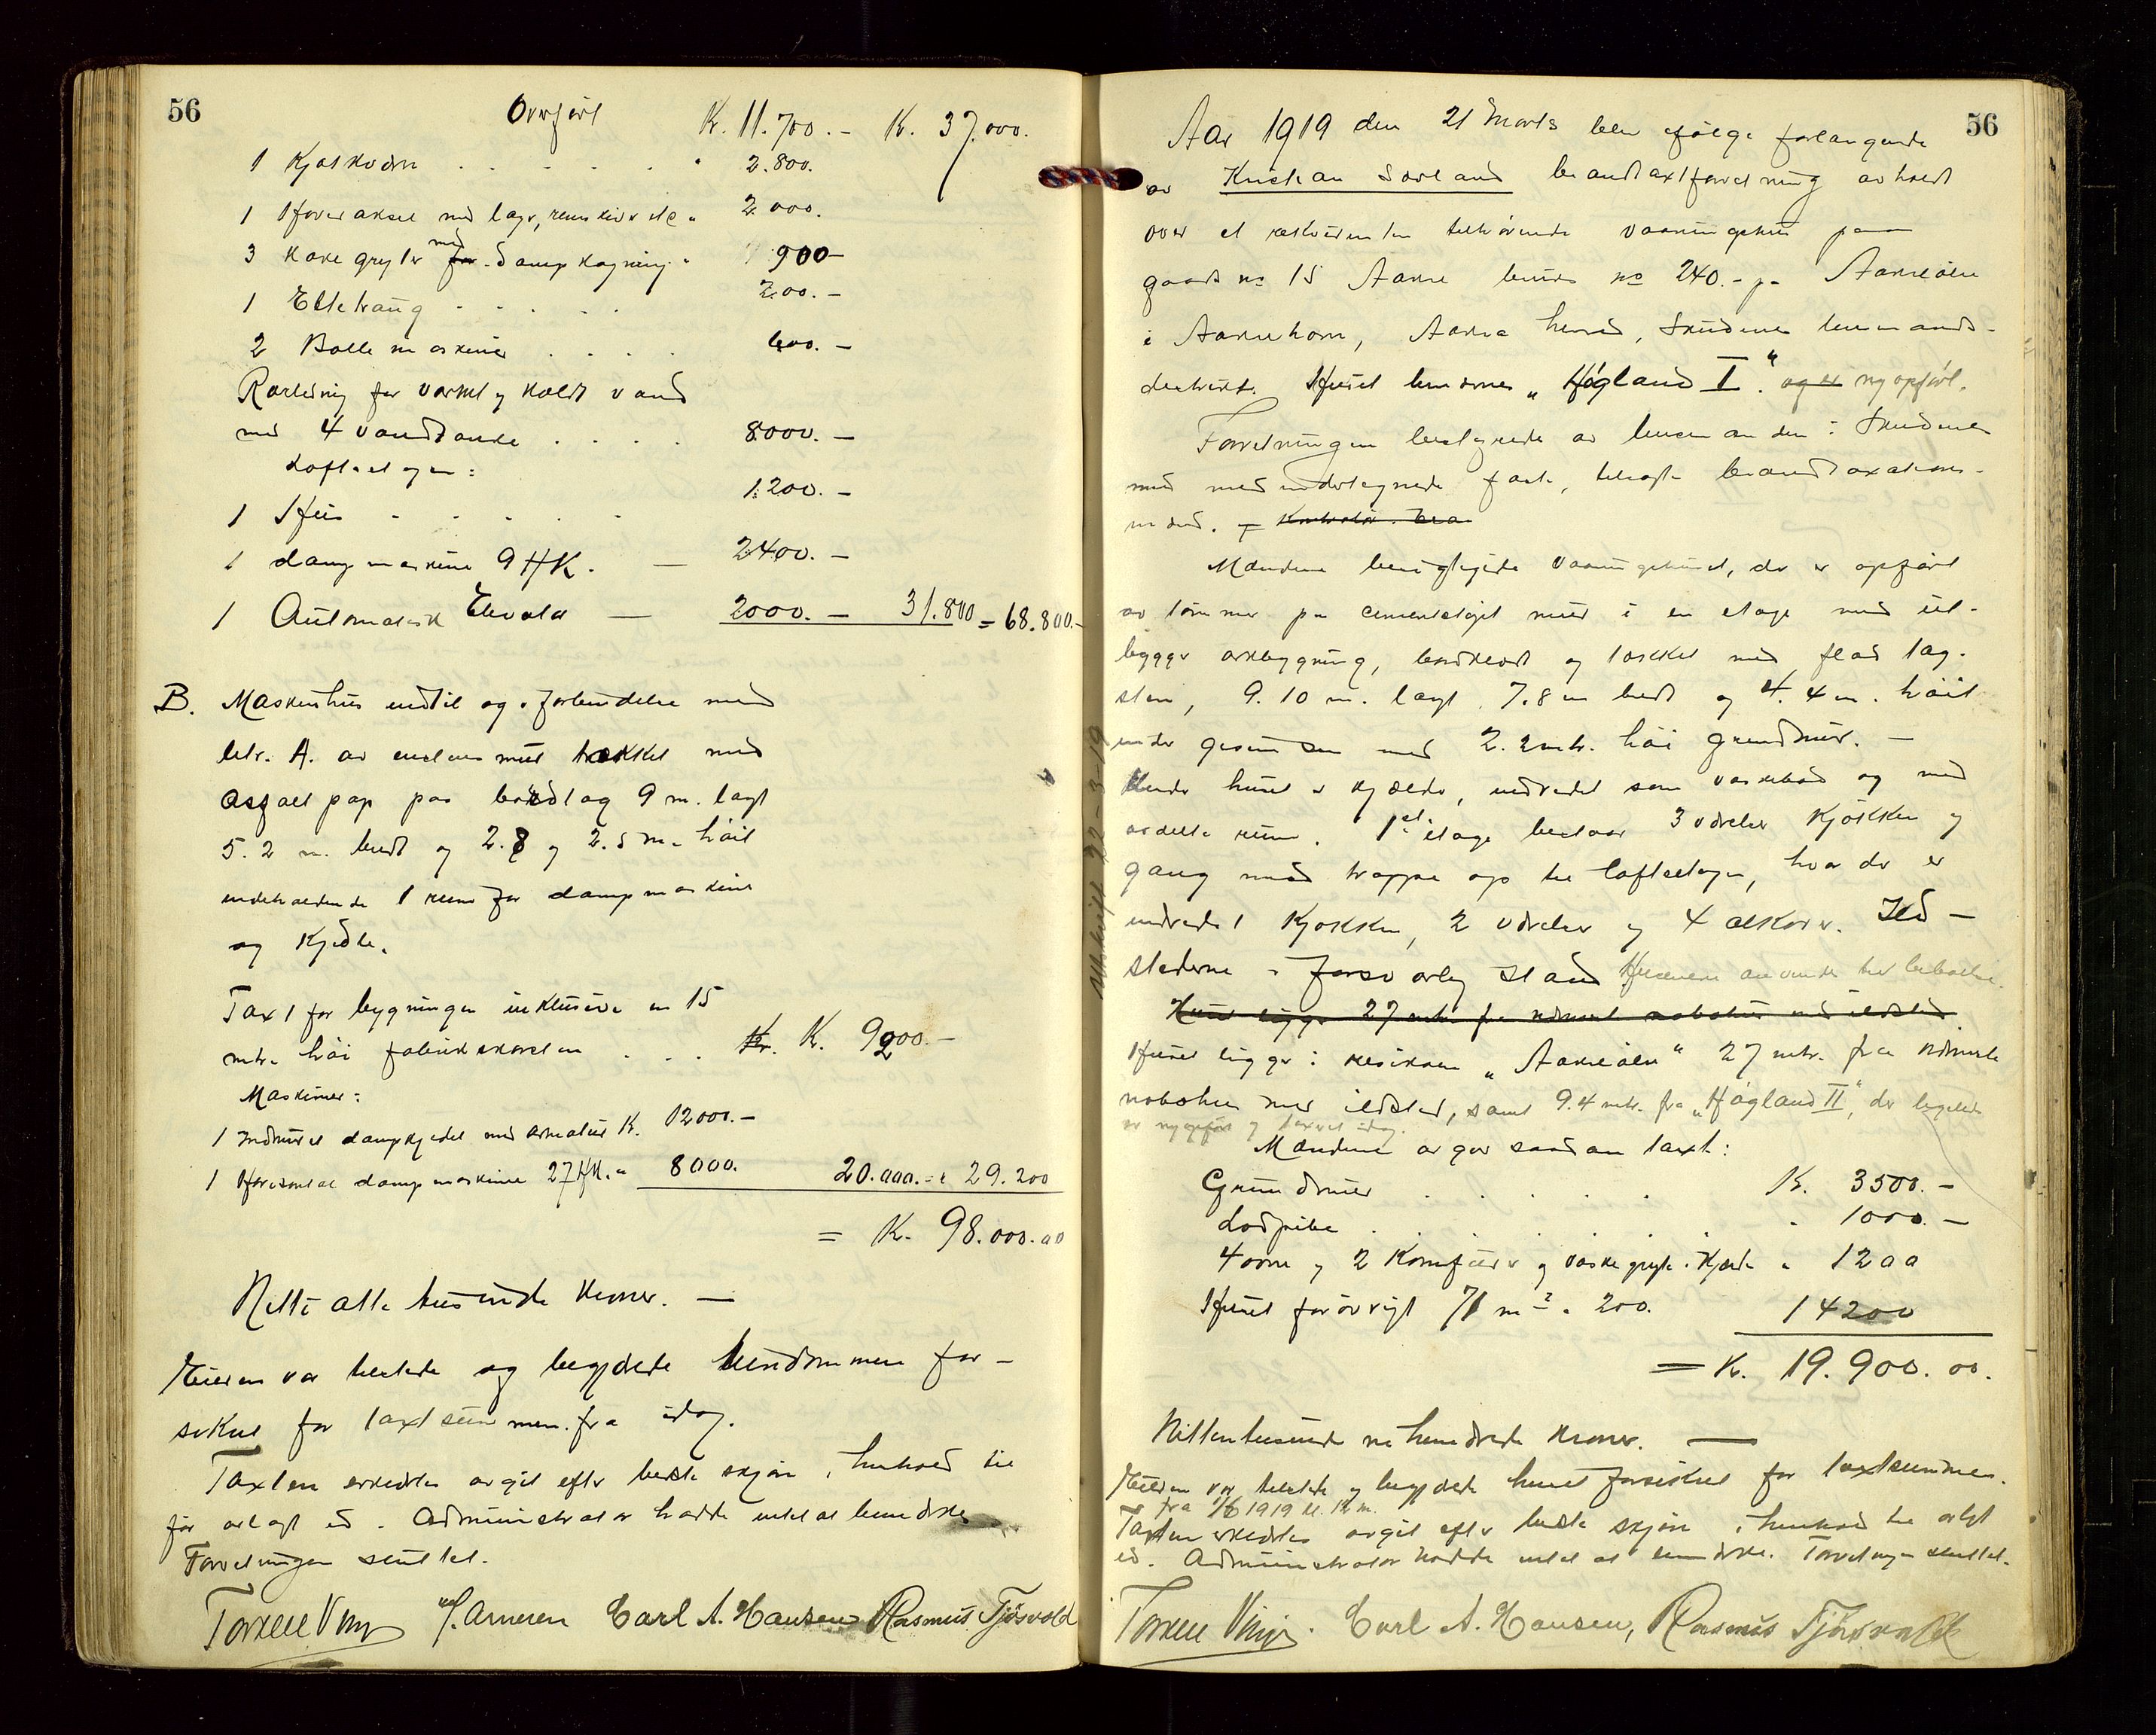 56
Overført Kr. 11.700.- K. 37.000.
1 Kjøtkvern . . . . . . 2.800.
1 Hovedaksel med lager, remskiver etc " 2.000.
3 Kokegryter med for dampkogning " 900-
1 Eltetraug - . . . . 200.-
2 Bollemaskiner . . . . 600.-
Rørledning for varmt og koldt vand
med 4 vandtanke . . . . 8000.-
Loftsetagen:
1 Heis - . . . . 1.200.-
1 dampmaskine 9 HK. — 2400.-
1 Automatisk Elevator — 2000.- 31.800 = 68.800.-
B. Maskinhus indtil og i forbindelse med
litr. A. av enstensmur tækket med
asfaltpap paa bordtag 9 m. langt
5.2 m. bredt og 2.8 og 2.5 m. høit
indeholdende 1 rum for dampmaskine
og Kjedle.
Taxt for bygningen inklusive en 15
mtr. høi fabrikskorsten . . . Kr. K. 9200.-
Maskiner:
1 indmuret dampkjedel med armatur K. 12000.-
1 Horisontal dampmaskine 27 HK. " 8000. 20.000.- = 29.200
= K. 98.000.00
Nitti otte tusinde Kroner. —
Eieren var tilstede og begjærte eiendommen for-
sikret for taxtsummen fra idag.
Taxten erklærtes avgit efter bedste skjøn i henhold til
før avlagt ed. Administrator hadde intet at bemerke
Forretningen sluttet.
Torkell Vinje J. Arnesen Carl A. Hansen Rasmus Tjøsvold
56
Aar 1919 den 21 Marts blev ifølge forlangende
av Kristian Sørland brandtaxtforretning avholdt
over et rekvirenten tilhørende vaaningshus paa
gaards no 15 Aakre bruks no 240.- pa Aakreøen
i Aakrehavn, Aakra herred, Skudenes lensmands-
distrikt. Huset benævnes „Høgland I". og er nyopført.
Forretningen bestyredes av lensmanden i Skudenes
med medundertegnede faste, edsvorne brandtaxations-
mænd. - Kontrolør
Mændene besigtigede vaaningshuset, der er opført
av tømmer pa cementstøpt mur i en etage med ut-
bygget arkbygning, bordklædt og tækket med flad tag-
sten, 9.10 m. langt 7.8 m bredt og 4.4 m. høit
under gesimsen med 2.2 mtr. høi grundmur. —
Under huset er kjælder, indredet som vaskebod og med
avdelte rum. 1ste etage bestaar 3 værelser Kjøkken og
gang med trappe op til loftsetagen, hvor der er
indredet Kjøkken, 2 værelser og 4 alkover. Ild-
stederne i forsvarlig stand Husene anvendes til beboelse.
Huset ligger 27 mtr. fra nærmeste nabohus med ildsted
Huset ligger i risikoen „Aakreøen" 27 mtr. fra nærmeste
nabohus med ildsted, samt 9.4 mtr. fra „Høgland II", der ligeledes
er nyopført og taxeret idag.
Mændene avgav saadan taxt:
Grundmur . . . . . K. 3500.-
Lodpibe . . . . . " 1000.-
4 ovne og 2 Komfurer og vaskegryte i Kjælder " 1200
Huset forøvrigt 71 m2 à 200. 14200
= K. 19.900.00.
Nittentusinde ni hundrede Kroner. —
Eieren var tilstede og begjærte huset forsikret for taxtsummen
fra 1/6 1919 kl. 12 m.
Taxten erklærtes avgit efter bedste skjøn i henhold til avlagt
ed. Administrator hadde intet at bemerke. Forretningen sluttet.
Torkell Vinje. Carl A. Hansen, Rasmus Tjøsvold
Utskrift 22-3-19